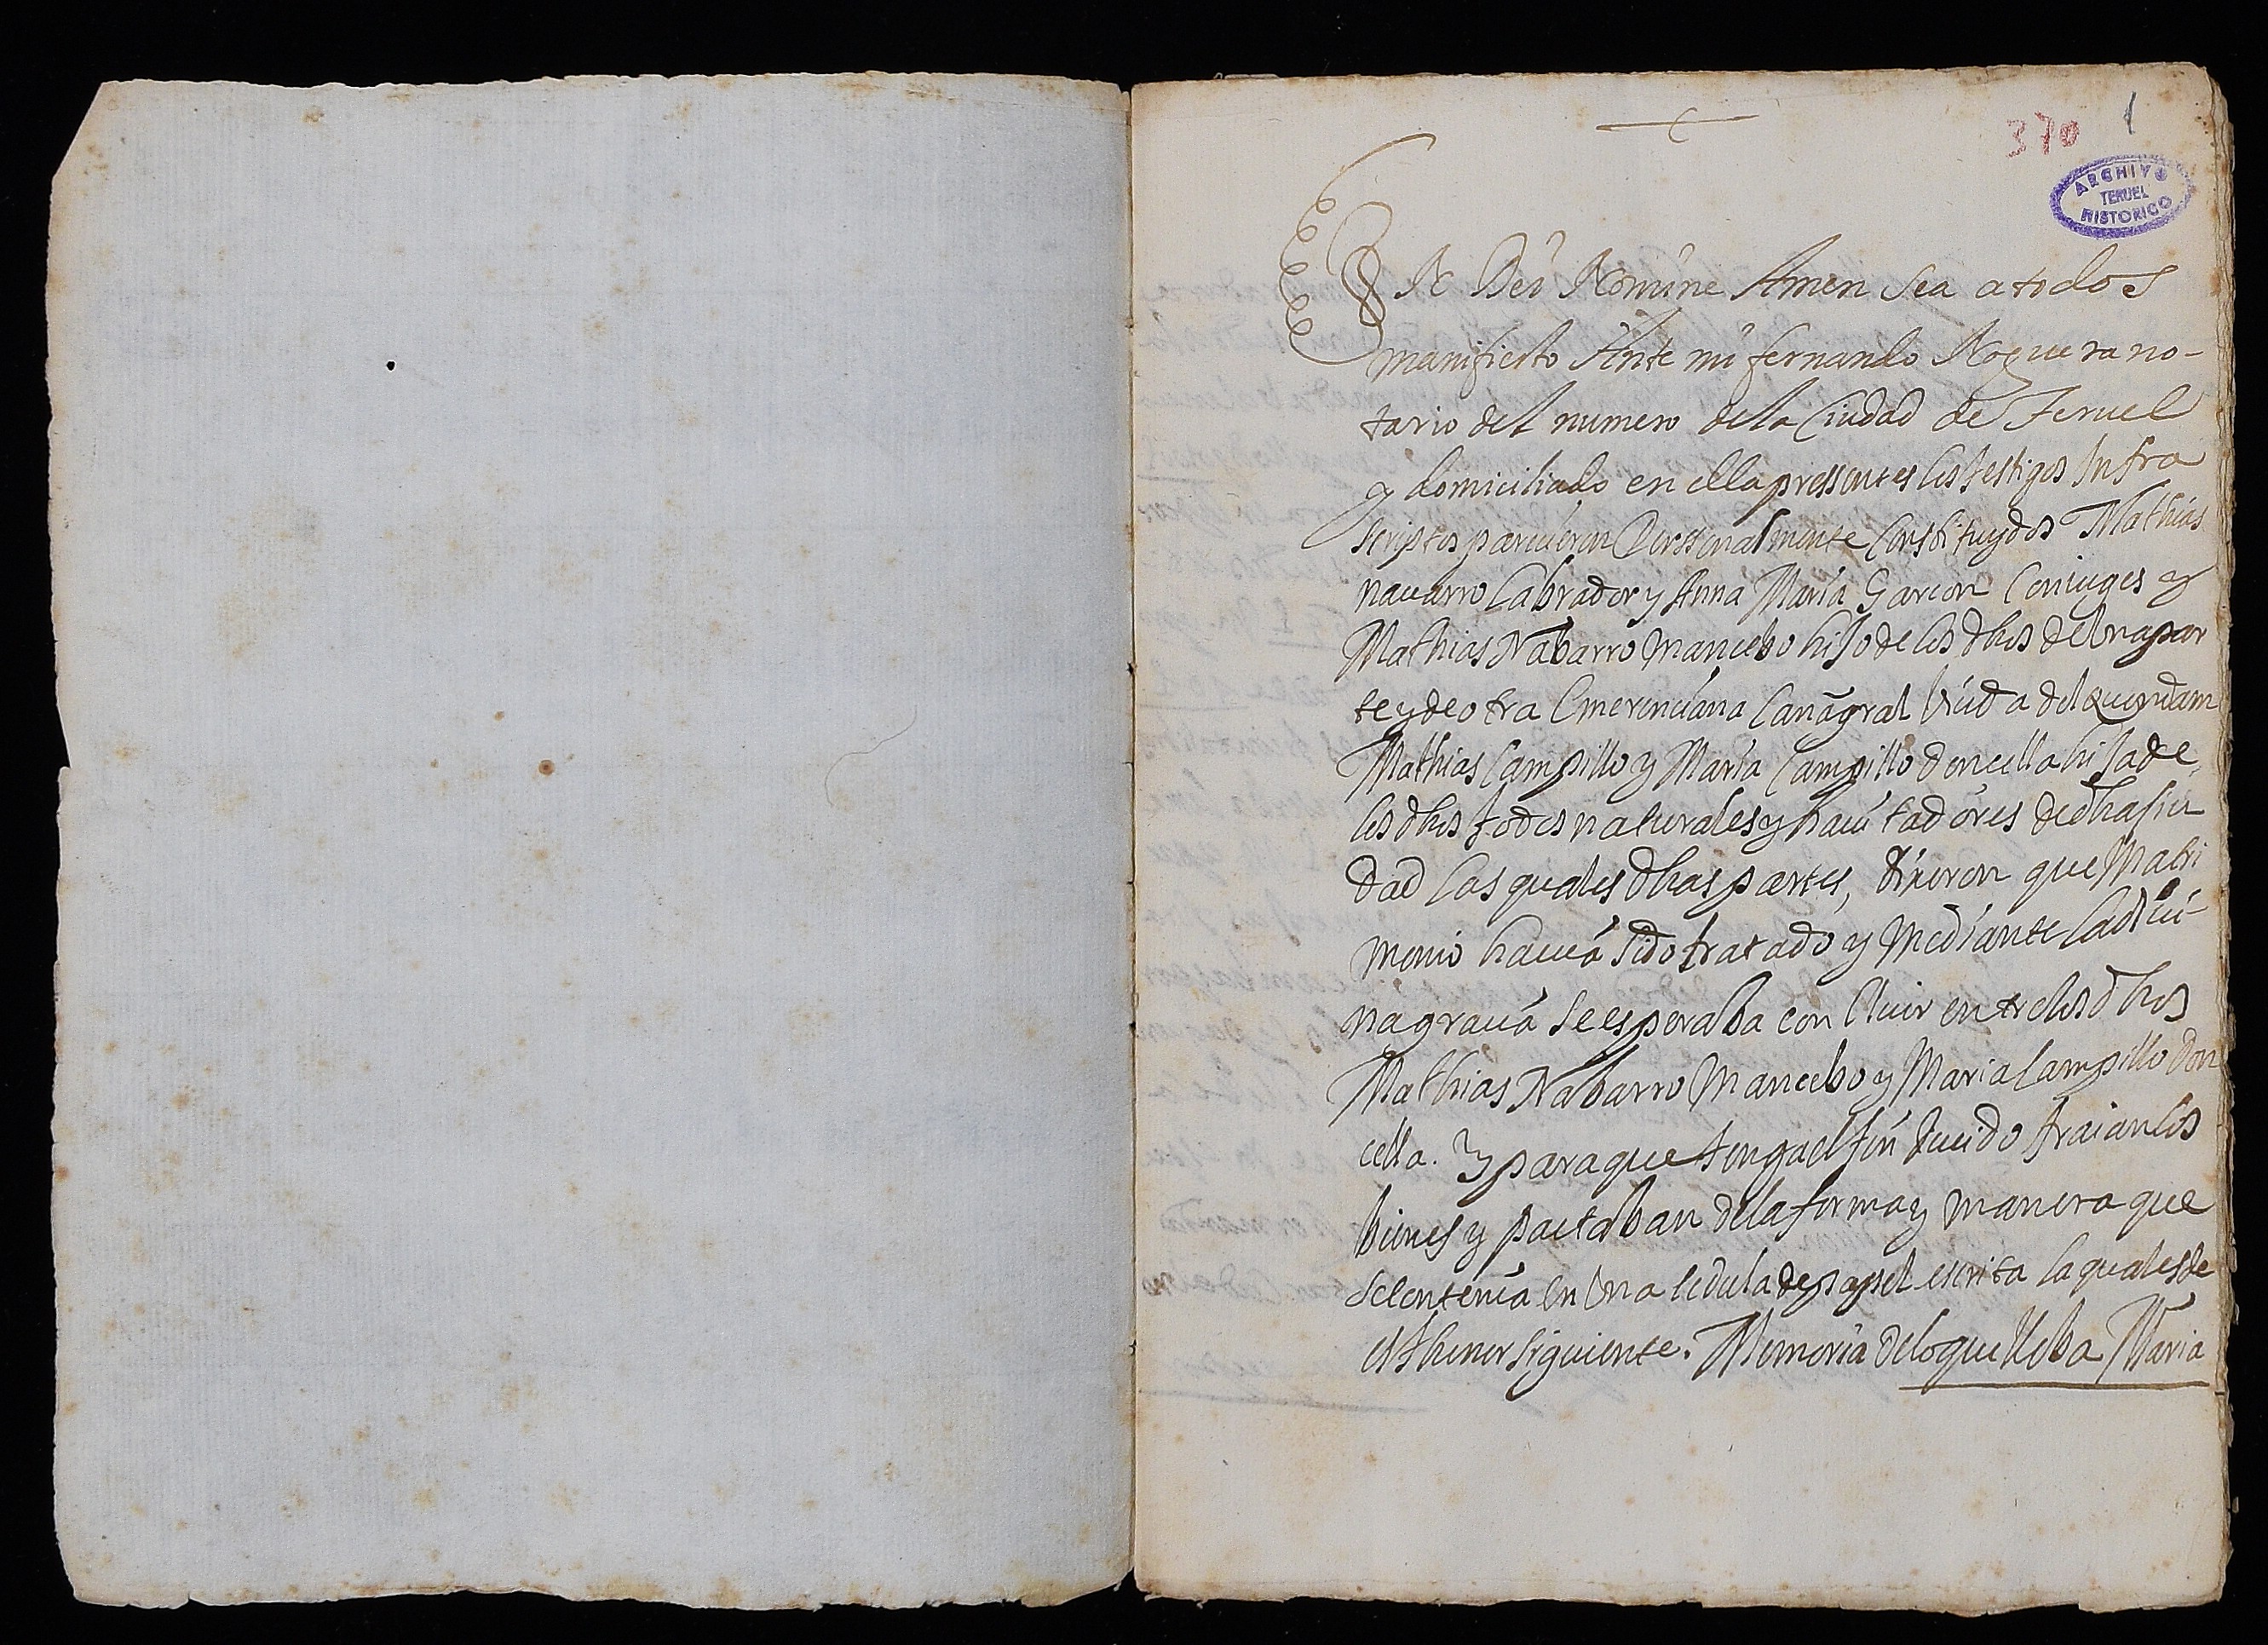 370 1
ARCHIVO
TERUEL
HISTORICO
IN Dei Nomine Amen sea a todos
manifiesto Ante mi fernando Noguera no-
tario del numero dela Ciudad de Teruel
y domiciliado en ella pressentes los testigos Infra
scriptos parecieron Perssonalmente Constituydos Mathias
nauarro labrador y Anna Maria Garcon Coniuges y
Mathias Nabarro mancebo hijo de los dhos de Una par
te y de otra Emerenciana Cañagral Viuda del quondam
Mathias Campillo y Maria Campillo doncella hija de
los dhos todos naturales y hauitadores de dha ciu
dad las quales dhas partes, dixeron que Matri
monio hauia sido tratado y mediante la diui-
na gracia se esperaba concluir entre los dhos
Mathias Nabarro Mancebo y Maria Campillo don
cella. Y para que tenga el fin deuido traian los
bienes y pactaban dela forma y manera que
se contenia en Una cedula de papel escrita la qual es de
el thenor siguiente. Memoria de lo que lleba Maria